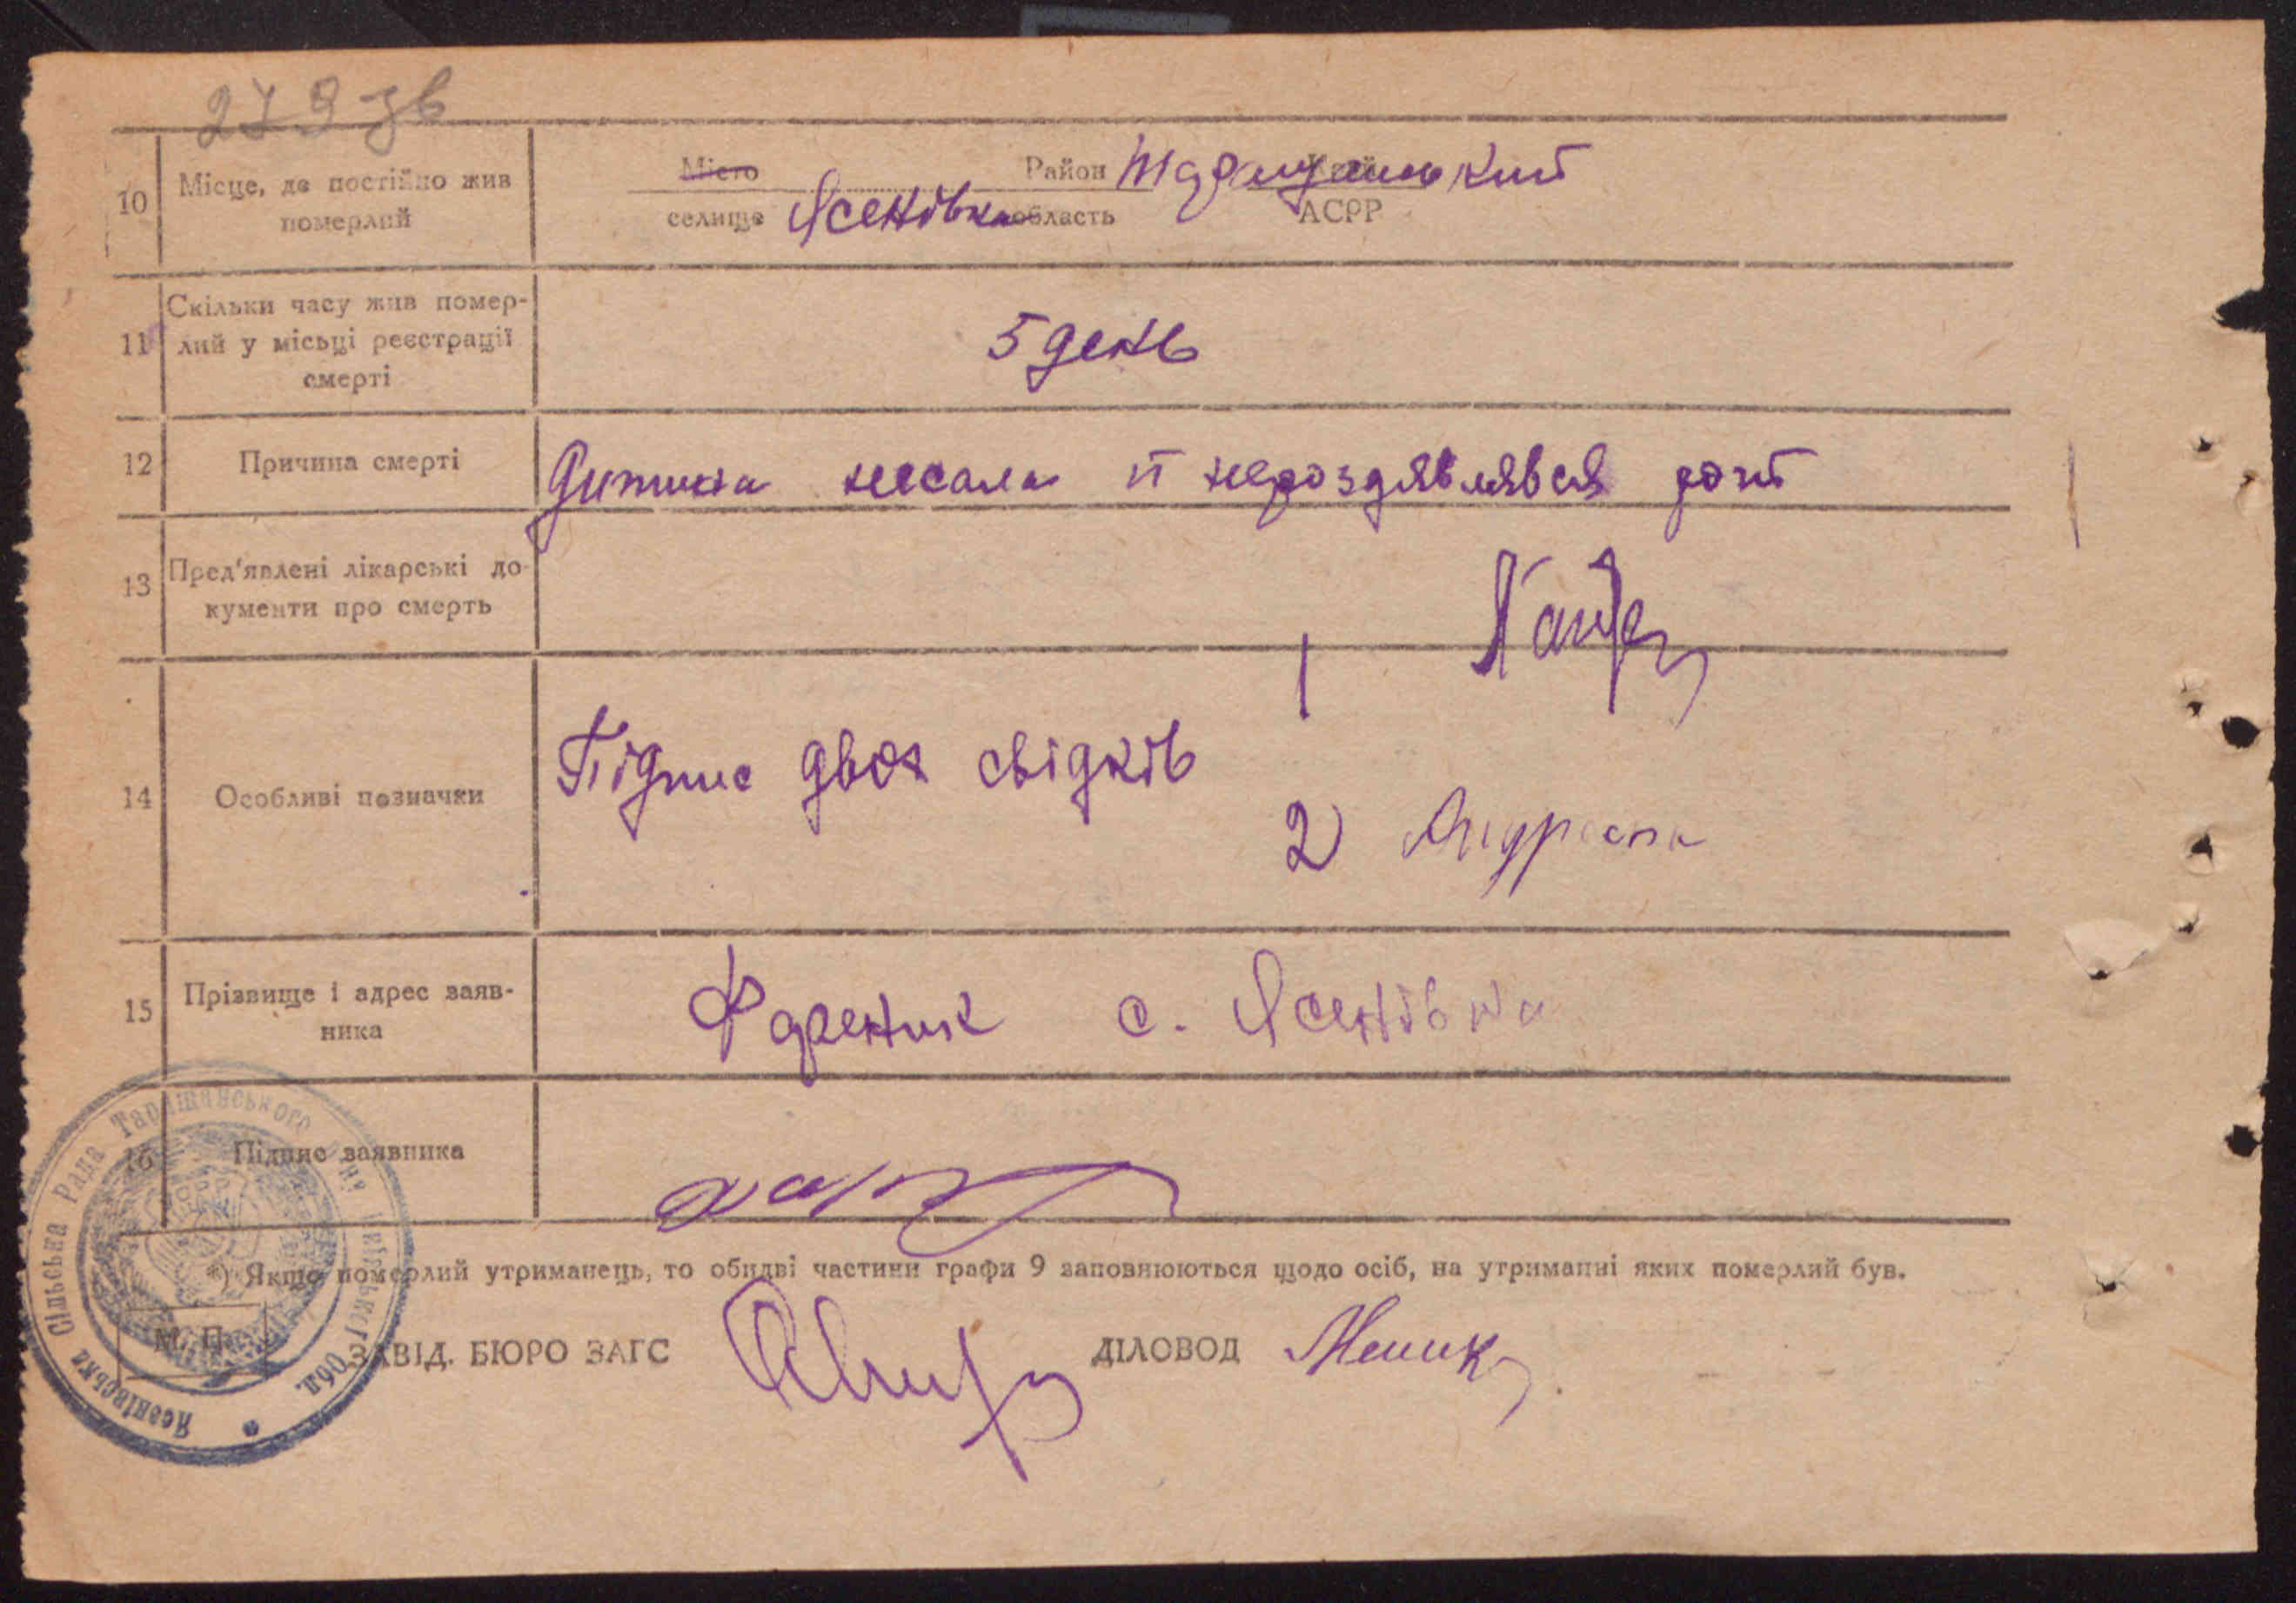 279 зв
10 Місце, де постійно жив померлий
Місто Район Таращанський
селище Ясенівка область АСРР
11 Скільки часу жив помер-
лий у місьці реєстрації
смерті
5 день
12 Причина смерті
Дитина несала й нероздявлявся рот
13 Пред'явлені лікарські до-
кументи про смерть
1
14 Особливі позначки
Підпис двох свідків
2)
15 Прізвище і адрес заяв-
ника
с. Ясенівка
16 Підпис заявника
*) Якщо померлий утриманець, то обидві частини графи 9 заповнюються щодо осіб, на утриманні яких померлий був.
М. П.
ЗАВІД. БЮРО ЗАГС ДІЛОВОД
Ясенівська Сільська Рада Таращанського р-ну Київської Обл.